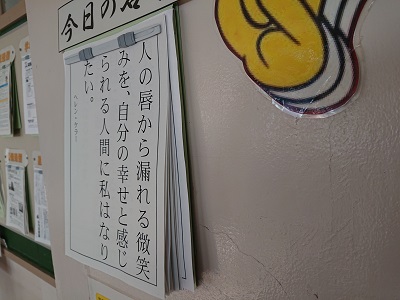 今日の名
人の唇から漏れる微笑
みを、自分の幸せと感じ
られる人間に私はなり
たい。
ヘレン・ケラー